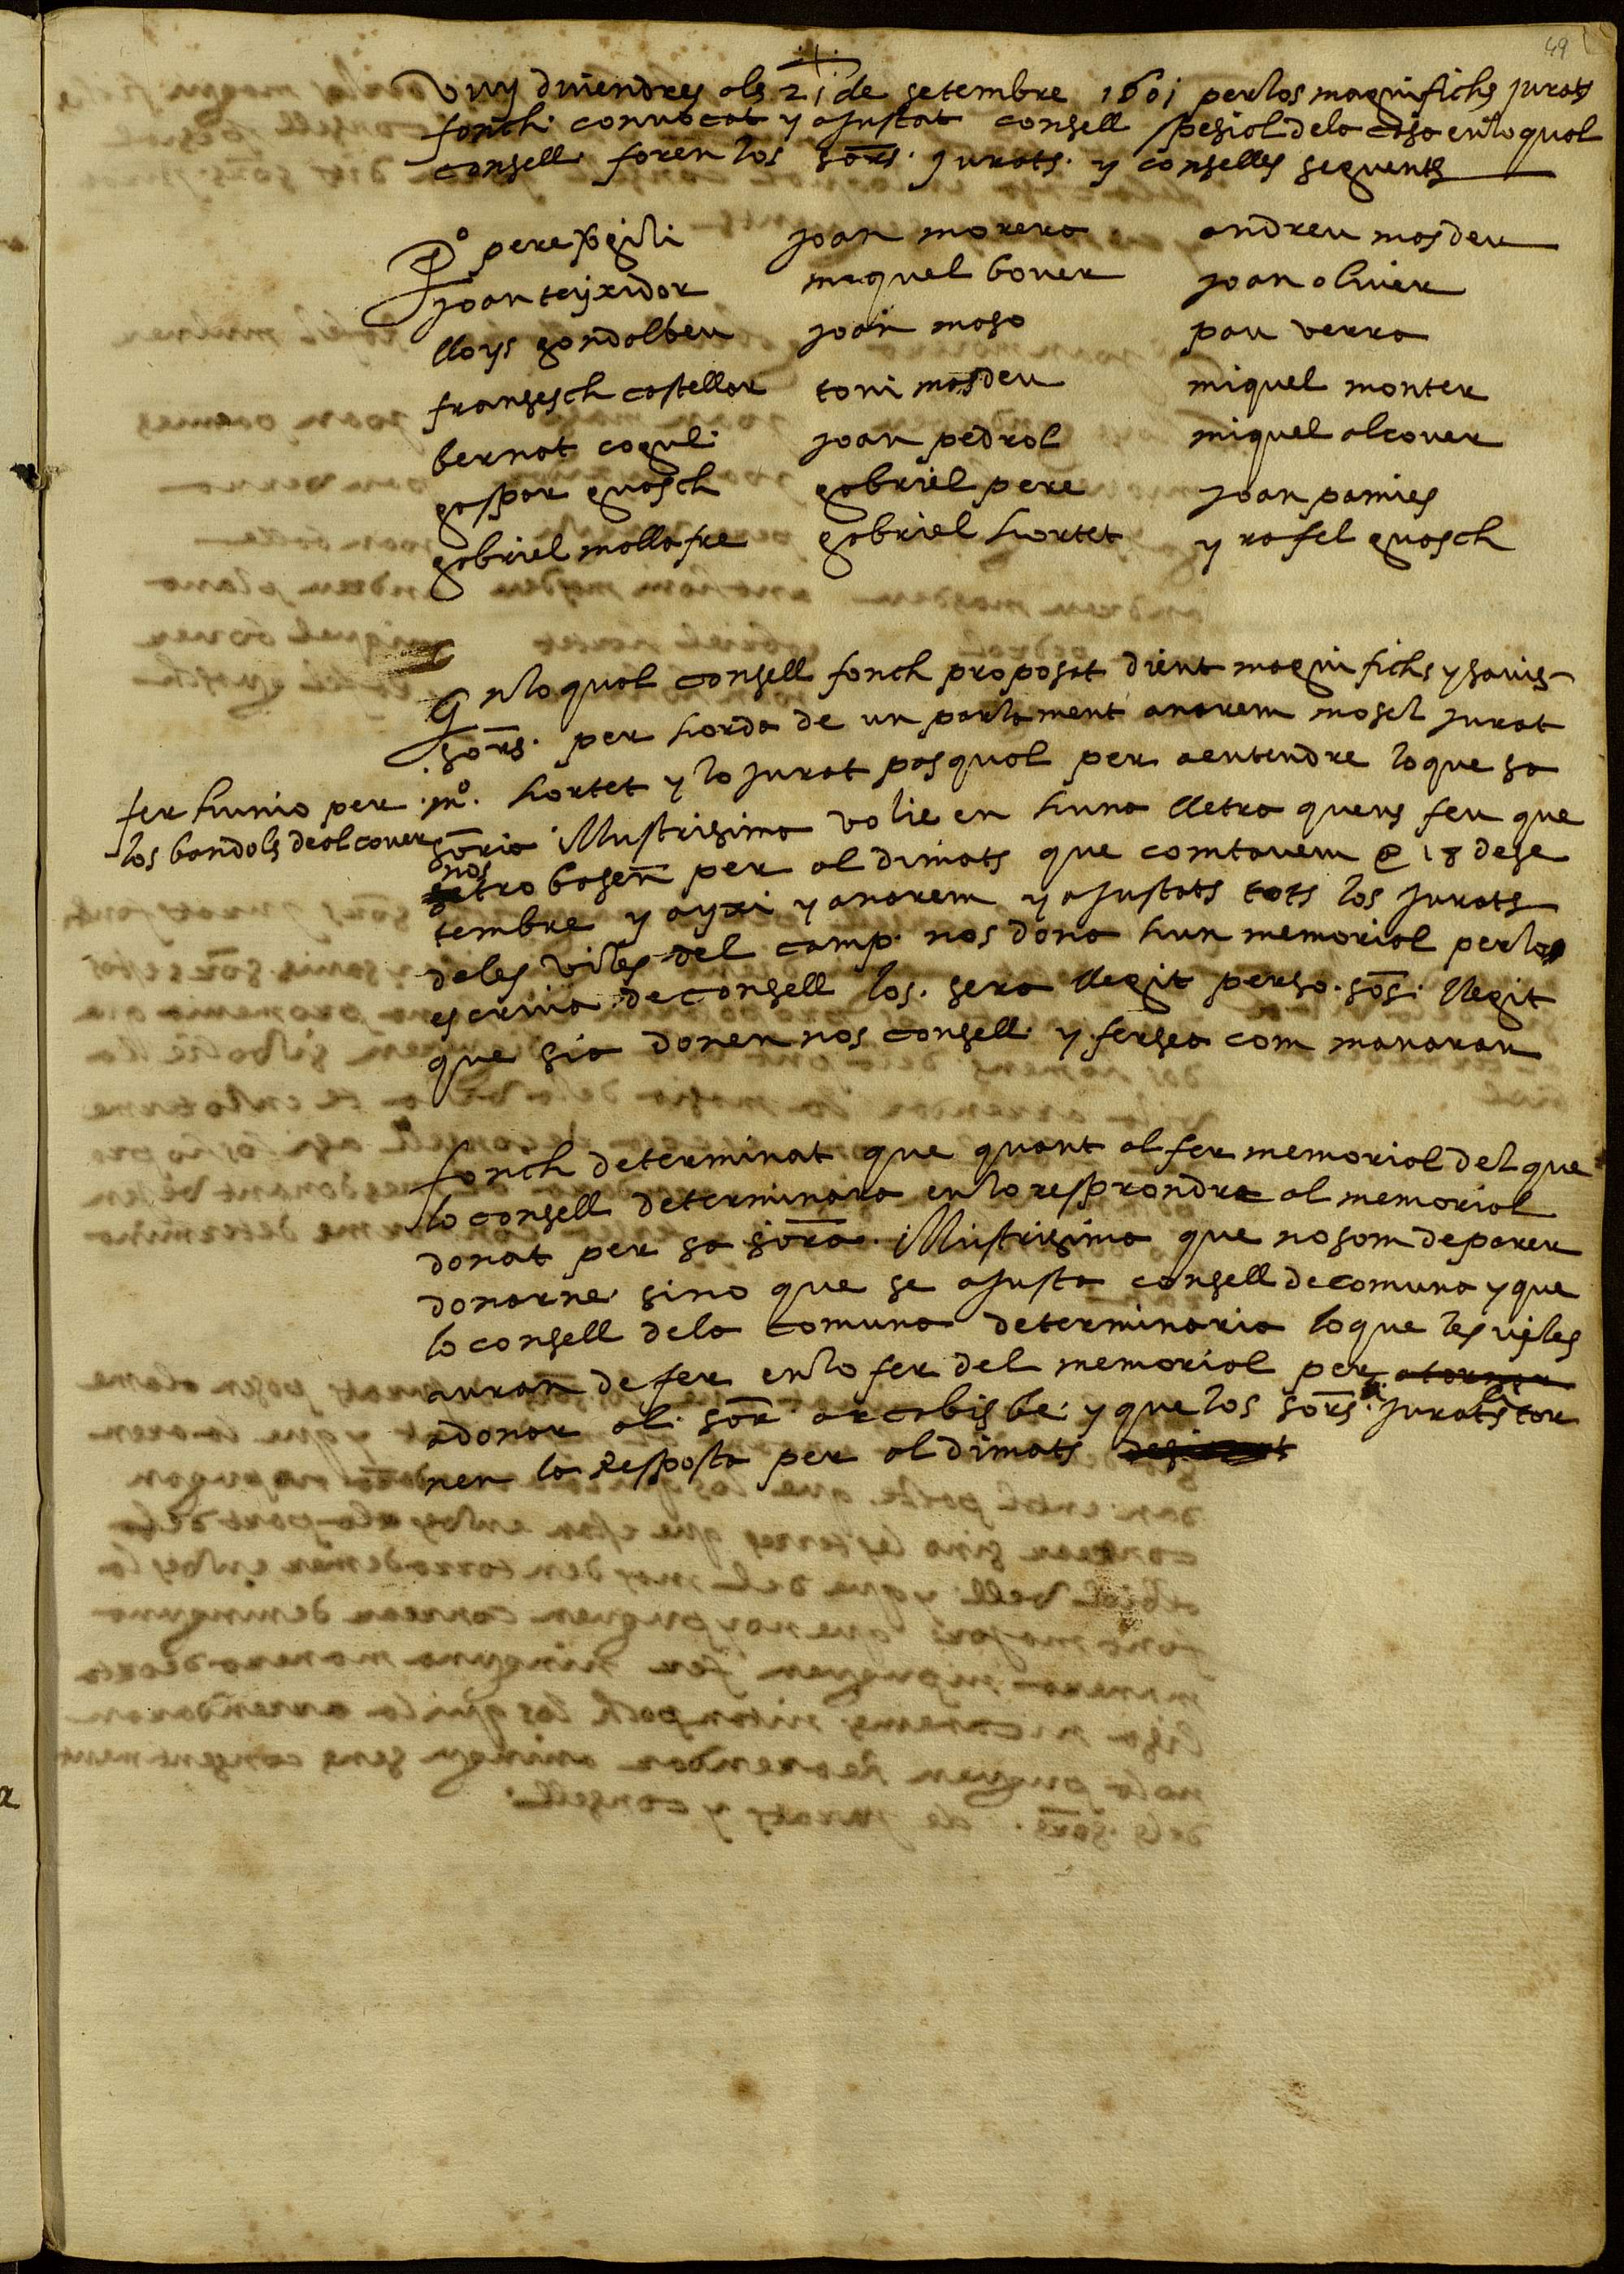 49
Vuy divendres als 21 de setembre 1601 per los magnifichs jurats
fonch convocat y ajustat consell spesial dela casa en lo qual
consell foren los sors. jurats. y consellés seguents
Po pere gili
joan teyxidor
lloys gondolbeu
fransesch castellar
bernat cogul
gaspar guasch
gabriel mallafre
joan morera
miquel bover
joan maso
toni masdeu
joan pedrol
gabriel pere
gabriel hortet
andreu masdeu
joan oliver
pau verra
miquel monter
miquel alcover
joan pamies
y rafel guasch
En lo qual consell fonch proposat dient magnifichs y savis
sors. per horda de un parlament anarem mosel jurat
mo. hortet y lo jurat pasqual per aentendre lo que sa
fer hunio per
los bandols de alcover
soria illustrisima volie en huna lletra quens feu que
nos
trobasen per al dimats que comtavem a 18 de se
tembre y ayxi y anarem y ajustats tots los jurats
deles viles del camp. nos dona hun memorial per lo
escriva de consell los. sera llegit per so. sos. llegit
que sia donen nos consell y fersea com manaran
fonch determinat que quant al fer memorial del que
lo consell determinara en lo resprondre al memorial
donat per sa sora. illustrisima que no som de parer
donarne sino que se ajusta consell de comuna y que
lo consell dela comuna determinaria lo que les viles
auran de fer en lo fer del memorial per atorner
adonar al. sor arcabisbe y que los sors. jurats tor
nen la Resposta per al dimats